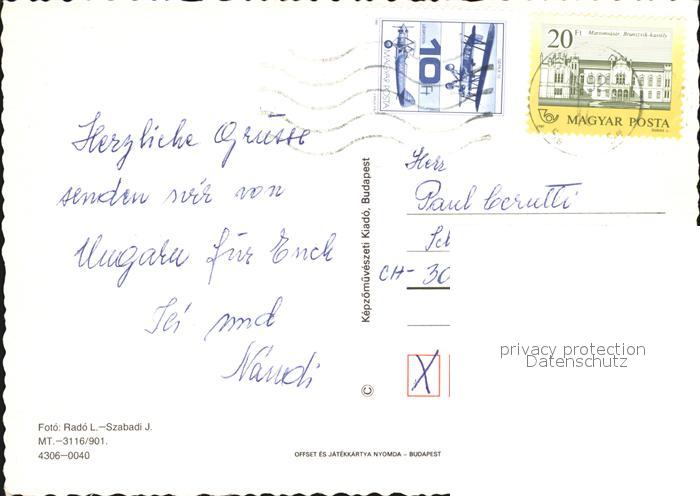 Herzliche Grüsse
senden wir von
Ungarn für Euch
und
Nándi
Fotó: Radó L.—Szabadi J.
MT.—3116/901.
4306—0040
© Képzőművészeti Kiadó, Budapest
OFFSET ÉS JÁTÉKKÁRTYA NYOMDA – BUDAPEST
MAGYAR POSTA
10 Ft
20 Ft Martonvásár, Brunszvik-kastély
MAGYAR POSTA
Herr
Paul Cerutti
CH- 30
X
privacy protection
Datenschutz